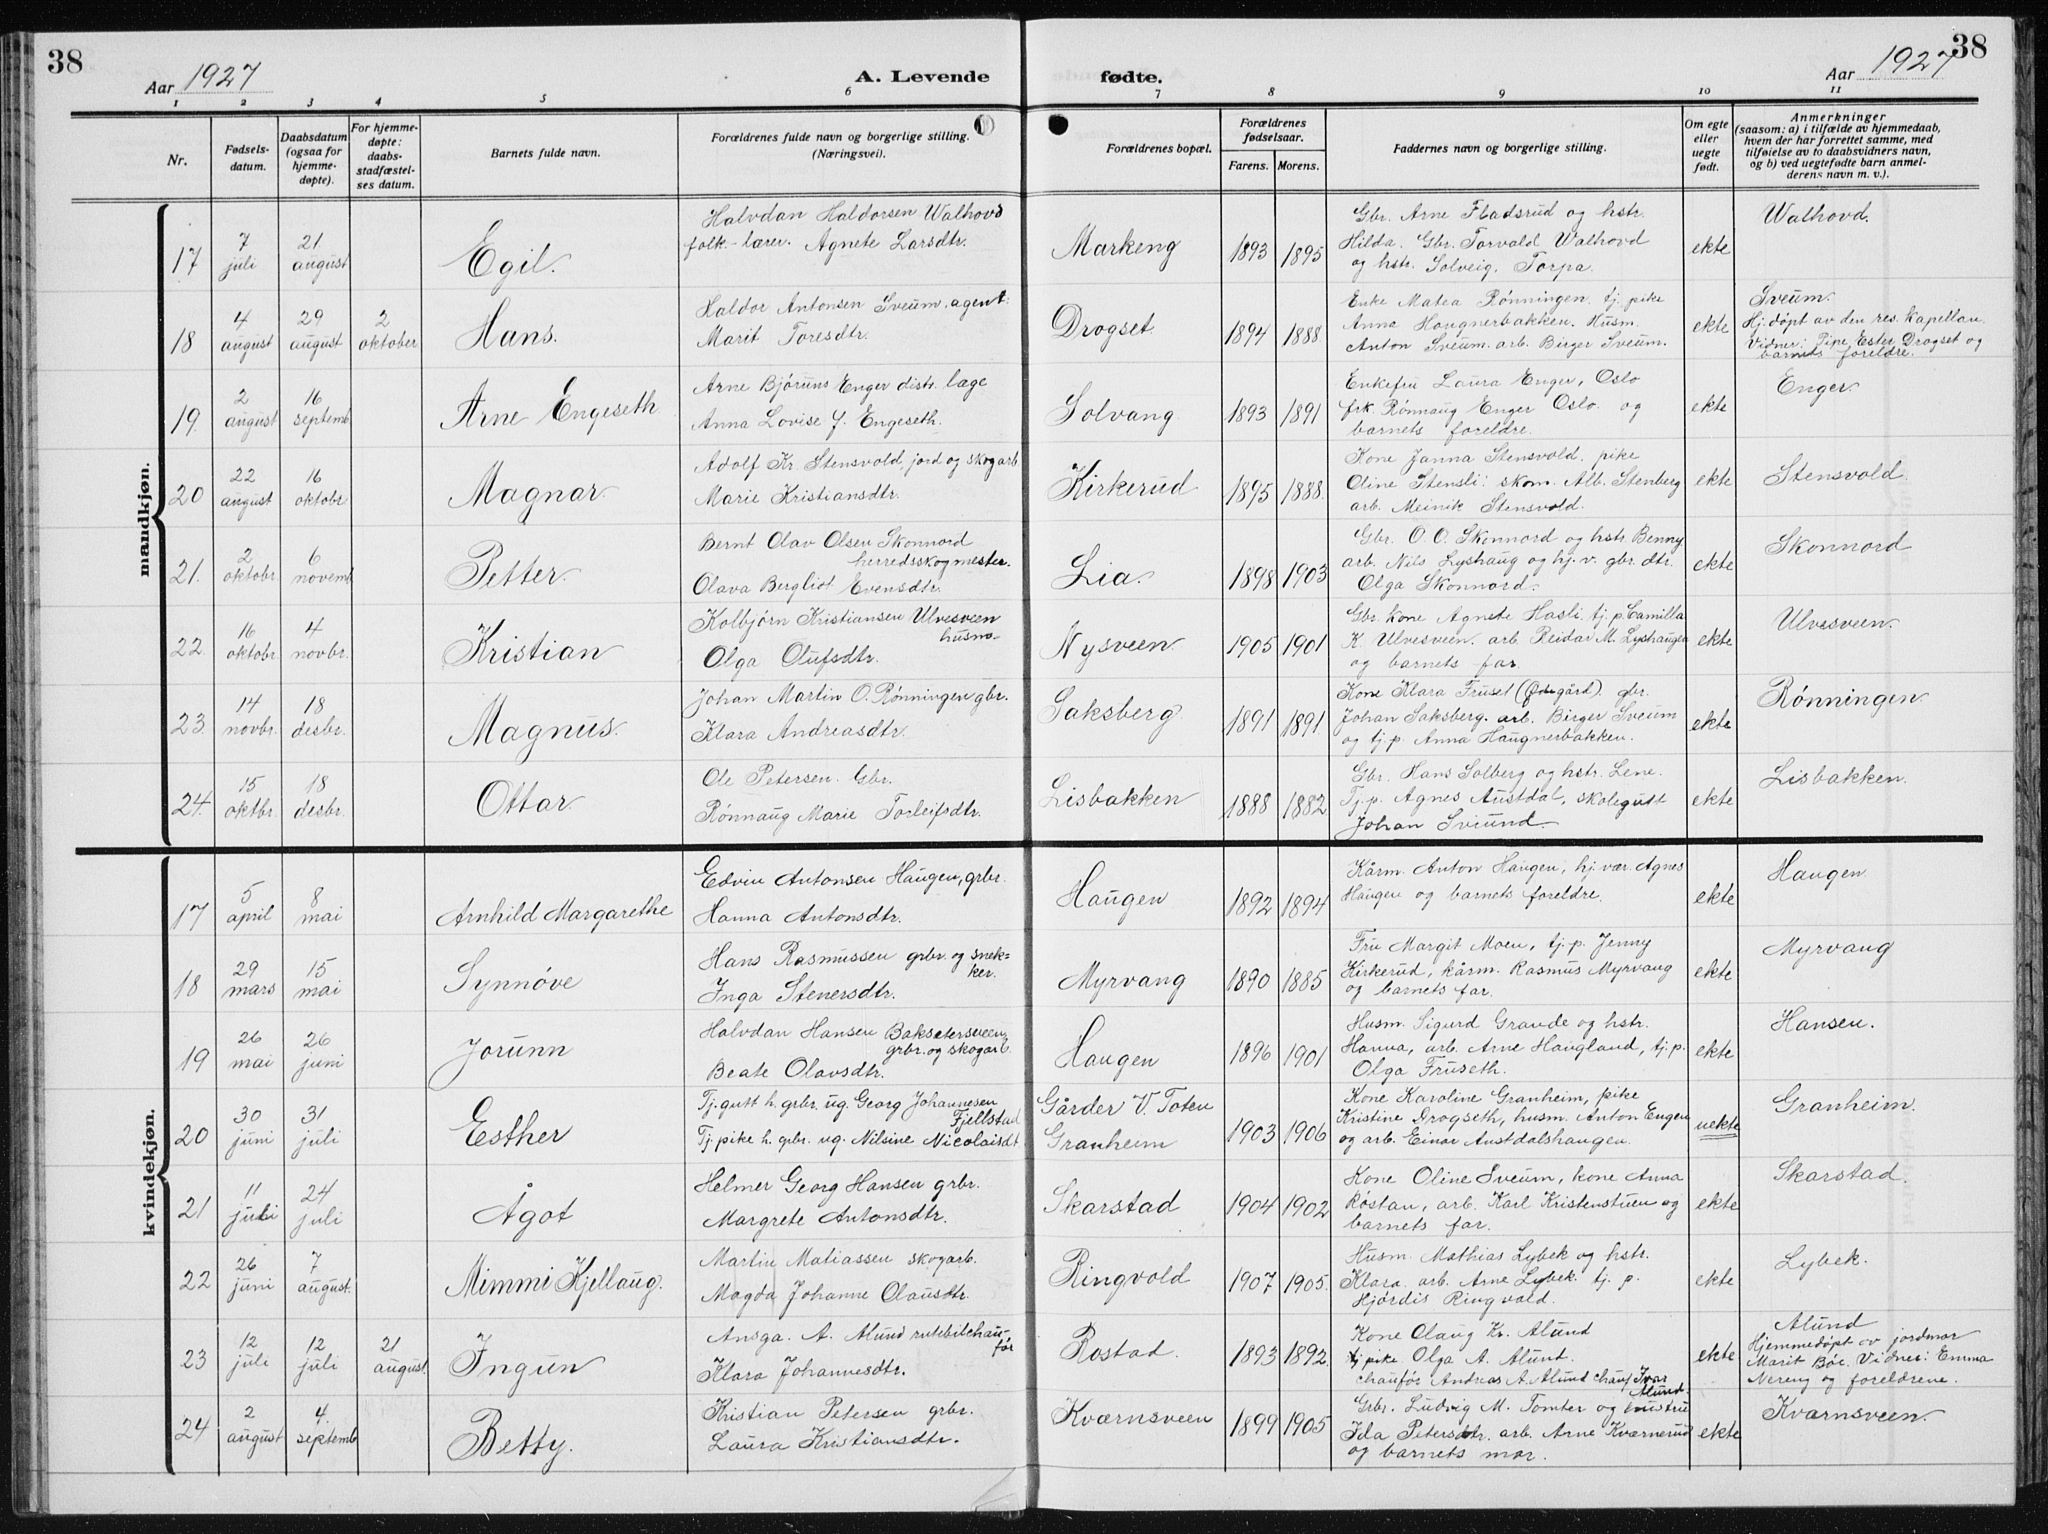 38
Aar 1927
A. Levende
fødte.
Aar 1927
38
1 2 3 4 5 6 7 8 9 10 11
Nr.
Fødsels-
datum.
Daabsdatum
(ogsaa for
hjemme-
døpte).
For hjemme-
døpte:
daabs-
stadfæstel-
ses datum.
Barnets fulde navn.
Forældrenes fulde navn og borgerlige stilling.
(Næringsvei).
Forældrenes bopæl.
Forældrenes
fødselsaar.
Farens. Morens.
Faddernes navn og borgerlige stilling.
Om egte
eller
uegte
født.
Anmerkninger
(saasom: a) i tilfælde av hjemmedaab,
hvem der har forrettet samme, med
tilføielse av to daabsvidners navn,
og b) ved uegtefødte barn anmel-
derens navn m. v.).
mandkjøn.
17
7
juli
21
august
Egil.
Halvdan Haldorsen Walhovd
folk-lærer. Agnete Larsdtr.
Markeng
1893 1895
Gbr. Arne Fladsrud og hstr.
Hilda. Gbr. Torvald Walhovd
og hstr. Solveig, Torpa.
ekte
Walhovd.
18
4
august
29
august
2
oktober
Hans.
Haldor Antonsen Sveum. agent.
Marit Toresdtr.
Drogset
1894 1888
Enke Matea Rønningen. tj. pike
Anna Haugnerbakken. Husm.
Anton Sveum. arb. Birger Sveum.
ekte
Sveum.
Hj.døpt av den res. kapellan.
Vidner: Pipe Ester Drogset og
barnets foreldre.
19.
2
august
16
septemb
Arne Engeseth
Arne Bjøruns Enger distr. læge
Anna Lovise J. Engeseth.
Solvang
1893 1891
Enkefru Laura Enger, Oslo
frk. Rønnaug Enger Oslo. og
barnets foreldre.
ekte
Enger.
20
22
august
16
oktobr
Magnar.
Adolf Kr. Stensvold, jord og skogarb
Marie Kristiansdtr.
Kirkerud
1895 1888.
Kone Janna Stensvold. pike
Oline Stensli. skom. Alb. Stenberg
arb. Meinik Stensvold.
ekte
Stensvold.
21.
2
oktobr.
6
novemb
Petter.
Bernt Olav Olsen Skonnord
herredsskogmester.
Olava Bergliot Evensdtr.
Lia.
1898 1903
Gbr. O. O. Skonnord og hstr. Benny
arb. Nils Lyshaug og hj. v. gbr. dtr.
Olga Skonnord.
ekte
Skonnord
22.
16
oktobr.
4
novbr.
Kristian
Kolbjørn Kristiansen Ulvesveen
husm.
Olga Olufsdtr.
Nysveen
1905 1901
Gbr. kone Agnete Hasli tj. p. Camilla
K. Ulvesveen. arb. Reidar M. Lyshaugen
og barnets far.
ekte
Ulvesveen.
23.
14
novbr.
18
desbr.
Magnus.
Johan Martin O. Rønningen gbr.
Klara Andreasdtr.
Saksberg
1891 1891
Kone Klara Fruset (Ødegård). gbr.
Johan Saksberg. arb. Birger Sveum
og tj. p. Anna Haugnerbakken.
ekte
Rønningen.
24.
15
oktbr.
18
desbr.
Ottar
Ole Petersen. Gbr.
Rønnaug Marie Torleifsdtr.
Lisbakken
1888 1882
Gbr. Hans Solberg og hstr. Lene.
Tj. p. Agnes Austdal, skolegutt
Johan Sviund.
ekte
Lisbakken.
kvindekjøn.
17
5
april
8
mai
Arnhild Margarethe
Edvin Antonsen Haugen, grbr.
Hanna Antonsdtr.
Haugen
1892 1894
Kårm. Anton Haugen, hj. vær. Agnes
Haugen og barnets foreldre.
ekte
Haugen.
18
29
mars
15
mai
Synnøve
Hans Rasmussen grbr. og snek-
ker.
Inga Stenersdtr.
Myrvang
1890 1885
Fru Margit Moen, tj. p. Jenny
Kirkerud, kårm. Rasmus Myrvang
og barnets far.
ekte
Myrvang
19
26
mai
26
juni
Jorunn
Halvdan Hansen Baksetersveen
grbr. og skogarb.
Beate Olavsdtr.
Haugen
1896 1901
Husm. Sigurd Grande og hstr.
Hanna, arb. Arne Haugland, tj. p.
Olga Fruseth.
ekte
Hansen.
20
30
juni
31
juli
Esther
Tj. gutt h. grbr. ug. Georg Johannesen
Fjellstad
Tj. pike h. grbr. ug. Nilsine Nicolaisdt
Gårder V. Toten
Granheim
1903 1906
Kone Karoline Granheim, pike
Kristine Drogseth, husm. Anton Engen
og arb. Einar Austdalshaugen.
uekte
Granheim.
21
11
juli
24
juli
Ågot
Helmer Georg Hansen grbr.
Margrete Antonsdtr.
Skarstad
1904 1902
Kone Oline Sveum, kone Anna
Røstan, arb. Karl Kristenstuen og
barnets far.
ekte
Skarstad.
22
26
juni
7
august.
Mimmi Kjellaug.
Martin Matiassen skogarb.
Magda Johanne Olausdtr.
Ringvold
1907 1905
Husm. Mathias Lybek og hstr.
Klara. arb. Arne Lybek. tj. p.
Hjørdis Ringvold.
ekte
Lybek.
23
12
juli
12
juli
21
august.
Ingun
Ansga. A. Alund rutebilchau-
før
Klara Johannesdtr.
Rostad.
1893 1892.
Kone Olaug Kr. Alund
tj pike. Olga A. Alund.
chaufør Andreas A. Alund chauf Ivar
Alund.
ekte
Alund
Hjemmedøpt av jordmor
Marit Bøe. Vidner: Emma
Nereng og foreldrene.
24
2
august
4.
septemb
Betty.
Kristian Petersen grbr.
Laura Kristiansdtr.
Kværnsveen
1899 1905
Grbr. Ludvig M. Tomter og hustru
Ida Petersdtr. arb. Arne Kværnerud
og barnets mor.
ekte
Kværnsveen.